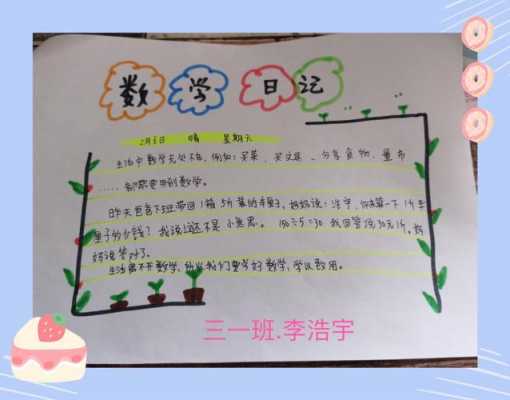 数学日记
2月5日 晴 星期六
生活中数学无处不在,例如:买菜、买文具、分享食物、量布
……都需要用到数学。
昨天爸爸下班带回1箱5斤装的车厘子,妈妈说:浩宇,你来算一下1斤车
厘子多少钱?我说这不是小意思。150÷5=30 我回答说30元1斤。妈
妈说答对了。
生活离不开数学,所以我们要学好数学,学以致用。
三一班.李浩宇